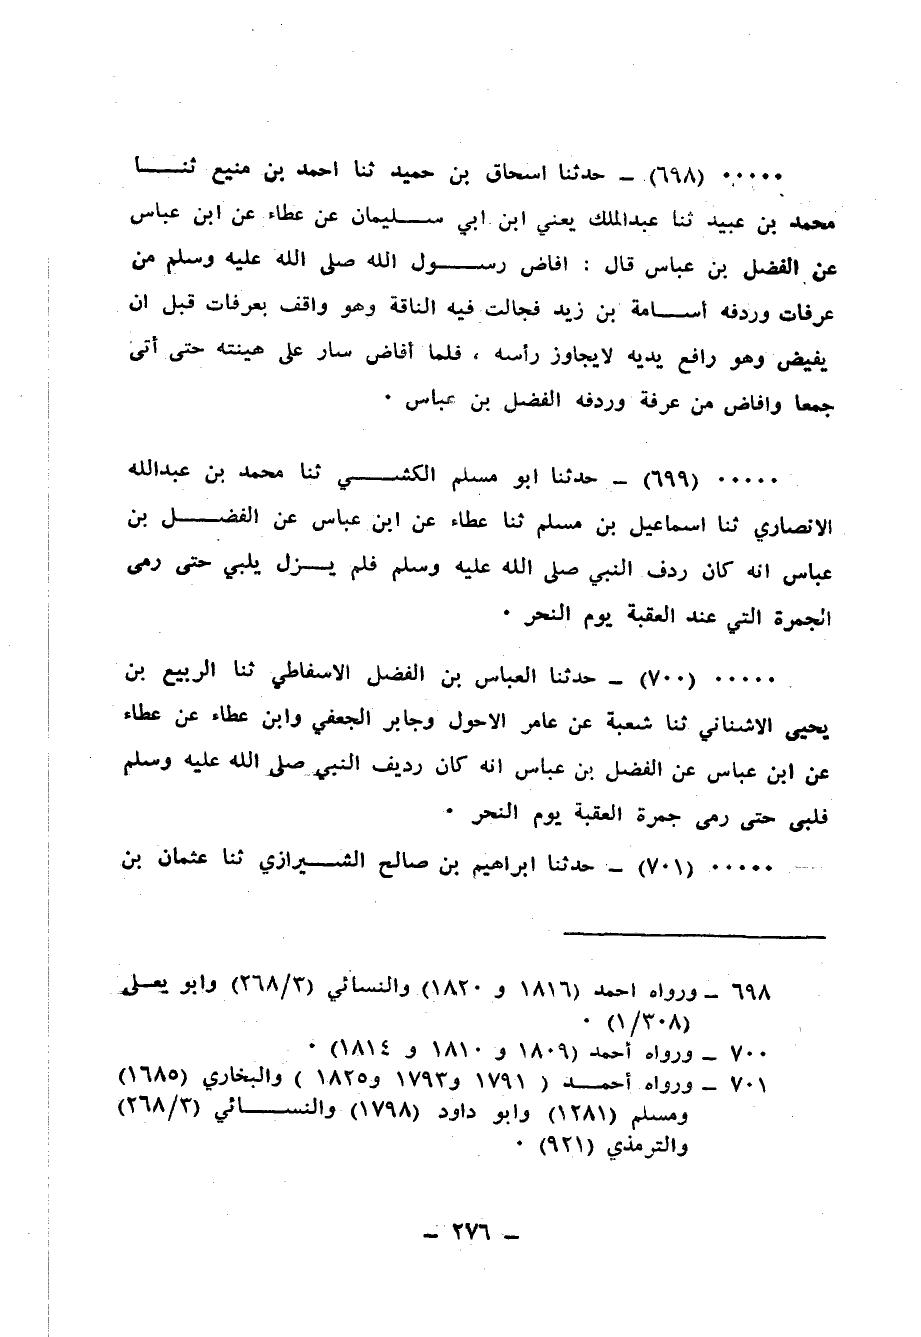 ٠٠٠٠٠ (٦٩٨) ــ حدثنا اسحاق بن حميد ثنا احمد بن منيع ثنـــــا
محمد بن عبيد ثنا عبدالملك يعني ابن ابي ســـليمان عن عطاء عن ابن عباس
عن الفضل بن عباس قال : افاض رســـــول الله صلى الله عليه وسلم من
عرفات وردفه أســـامة بن زيد فجالت فيه الناقة وهو واقف بعرفات قبل ان
يفيض وهو رافع يديه لايجاوز رأسه ، فلما أفاض سار على هينته حتى أتى
جمعا وافاض من عرفة وردفه الفضل بن عباس ٠
٠٠٠٠٠ (٦٩٩) ــ حدثنا ابو مسلم الكشـــــي ثنا محمد بن عبدالله
الانصاري ثنا اسماعيل بن مسلم ثنا عطاء عن ابن عباس عن الفضـــــل بن
عباس انه كان ردف النبي صلى الله عليه وسلم فلم يـــزل يلبي حتى رمى
الجمرة التي عند العقبة يوم النحر ٠
٠٠٠٠٠ (٧٠٠) ــ حدثنا العباس بن الفضل الاسفاطي ثنا الربيع بن
يحيى الاشناني ثنا شعبة عن عامر الاحول وجابر الجعفي وابن عطاء عن عطاء
عن ابن عباس عن الفضل بن عباس انه كان رديف النبي صلى الله عليه وسلم
فلبى حتى رمى جمرة العقبة يوم النحر ٠
٠٠٠٠٠ (٧٠١) ــ حدثنا ابراهيم بن صالح الشـــيرازي ثنا عثمان بن
٦٩٨ ــ ورواه احمد (١٨١٦ و ١٨٢٠) والنسائي (٢٦٨/٣) وابو يعـلى
(١/٣٠٨) ٠
٧٠٠ ــ ورواه أحمد (١٨٠٩ و ١٨١٠ و ١٨١٤) ٠
٧٠١ ــ ورواه أحمـــد ( ١٧٩١ و١٧٩٣ و١٨٢٥ ) والبخاري (١٦٨٥)
ومسلم (١٢٨١) وابو داود (١٧٩٨) والنســـــائي (٢٦٨/٣)
والترمذي (٩٢١) ٠
ــ ٢٧٦ ــ